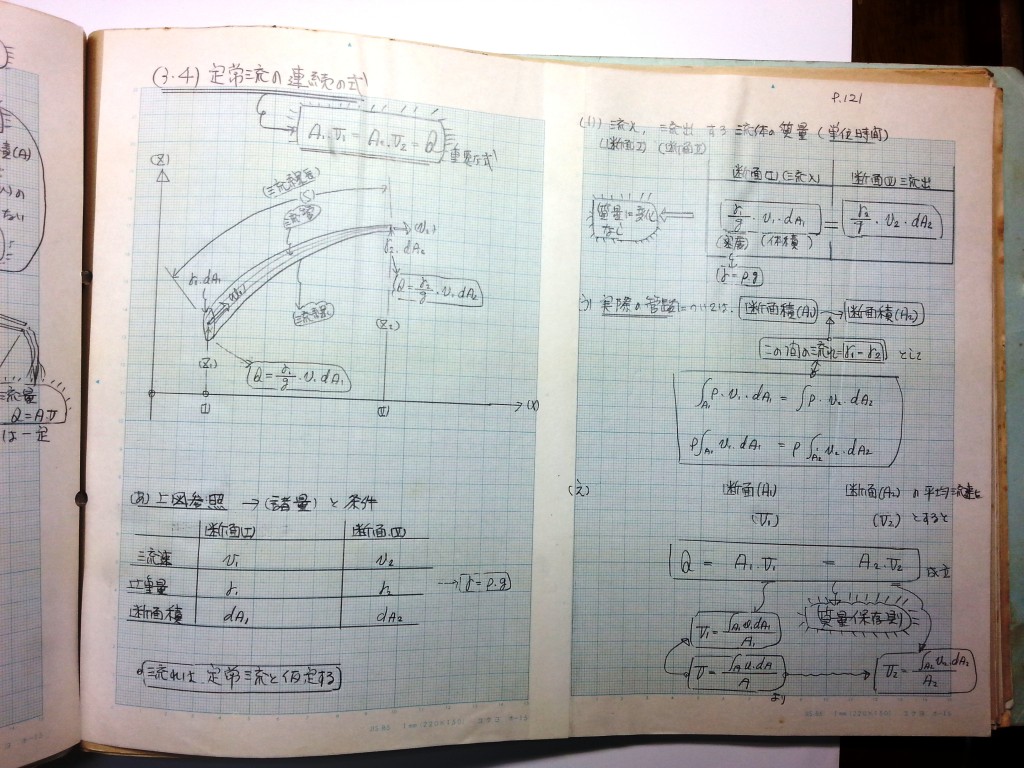 (3.4) 定常流の連続の式
A₁·V̅₁ = A₂·V̅₂ = Q
重要な式
(Z)
(流線長)
(S)
流管
→(v₂)
γ₂·dA₂
γ₁·dA₁
(v₁)
Q = γ₂/g · v₂ dA₂
流線
(Z₁)
(Z₂)
Q = γ₁/g · v₁ dA₁
(I)
(II)
(X)
(あ) 上図参照 → (諸量) と条件
断面(I) 断面(II)
流速 v₁ v₂
比重量 γ₁ γ₂ → γ = ρ.g
断面積 dA₁ dA₂
流れは定常流と仮定する
P.121
(い) 流入, 流出する流体の質量 (単位時間)
(断面I) (断面II)
断面(I) 流入 断面(II) 流出
質量に変化なし
γ₁/g · v₁·dA₁ = γ₂/g · v₂·dA₂
(密度) (体積)
γ = ρ.g
う) 実際の管路については、断面積(A₁) → 断面積(A₂)
この間の流れ γ₁ = γ₂ として
∫A₁ ρ·v₁·dA₁ = ∫ρ·v₂·dA₂
ρ∫A₁ v₁·dA₁ = ρ∫A₂ v₂·dA₂
(え) 断面(A₁) 断面(A₂) の平均流速を
(V̅₁) (V̅₂) とすると
Q = A₁·V̅₁ = A₂·V̅₂ 成立
質量保存則
V̅₁ = ∫A₁ v₁ dA₁ / A₁
V̅ = ∫A v·dA / A より
V̅₂ = ∫A₂ v₂·dA₂ / A₂
流量
Q = A·V̅
は一定